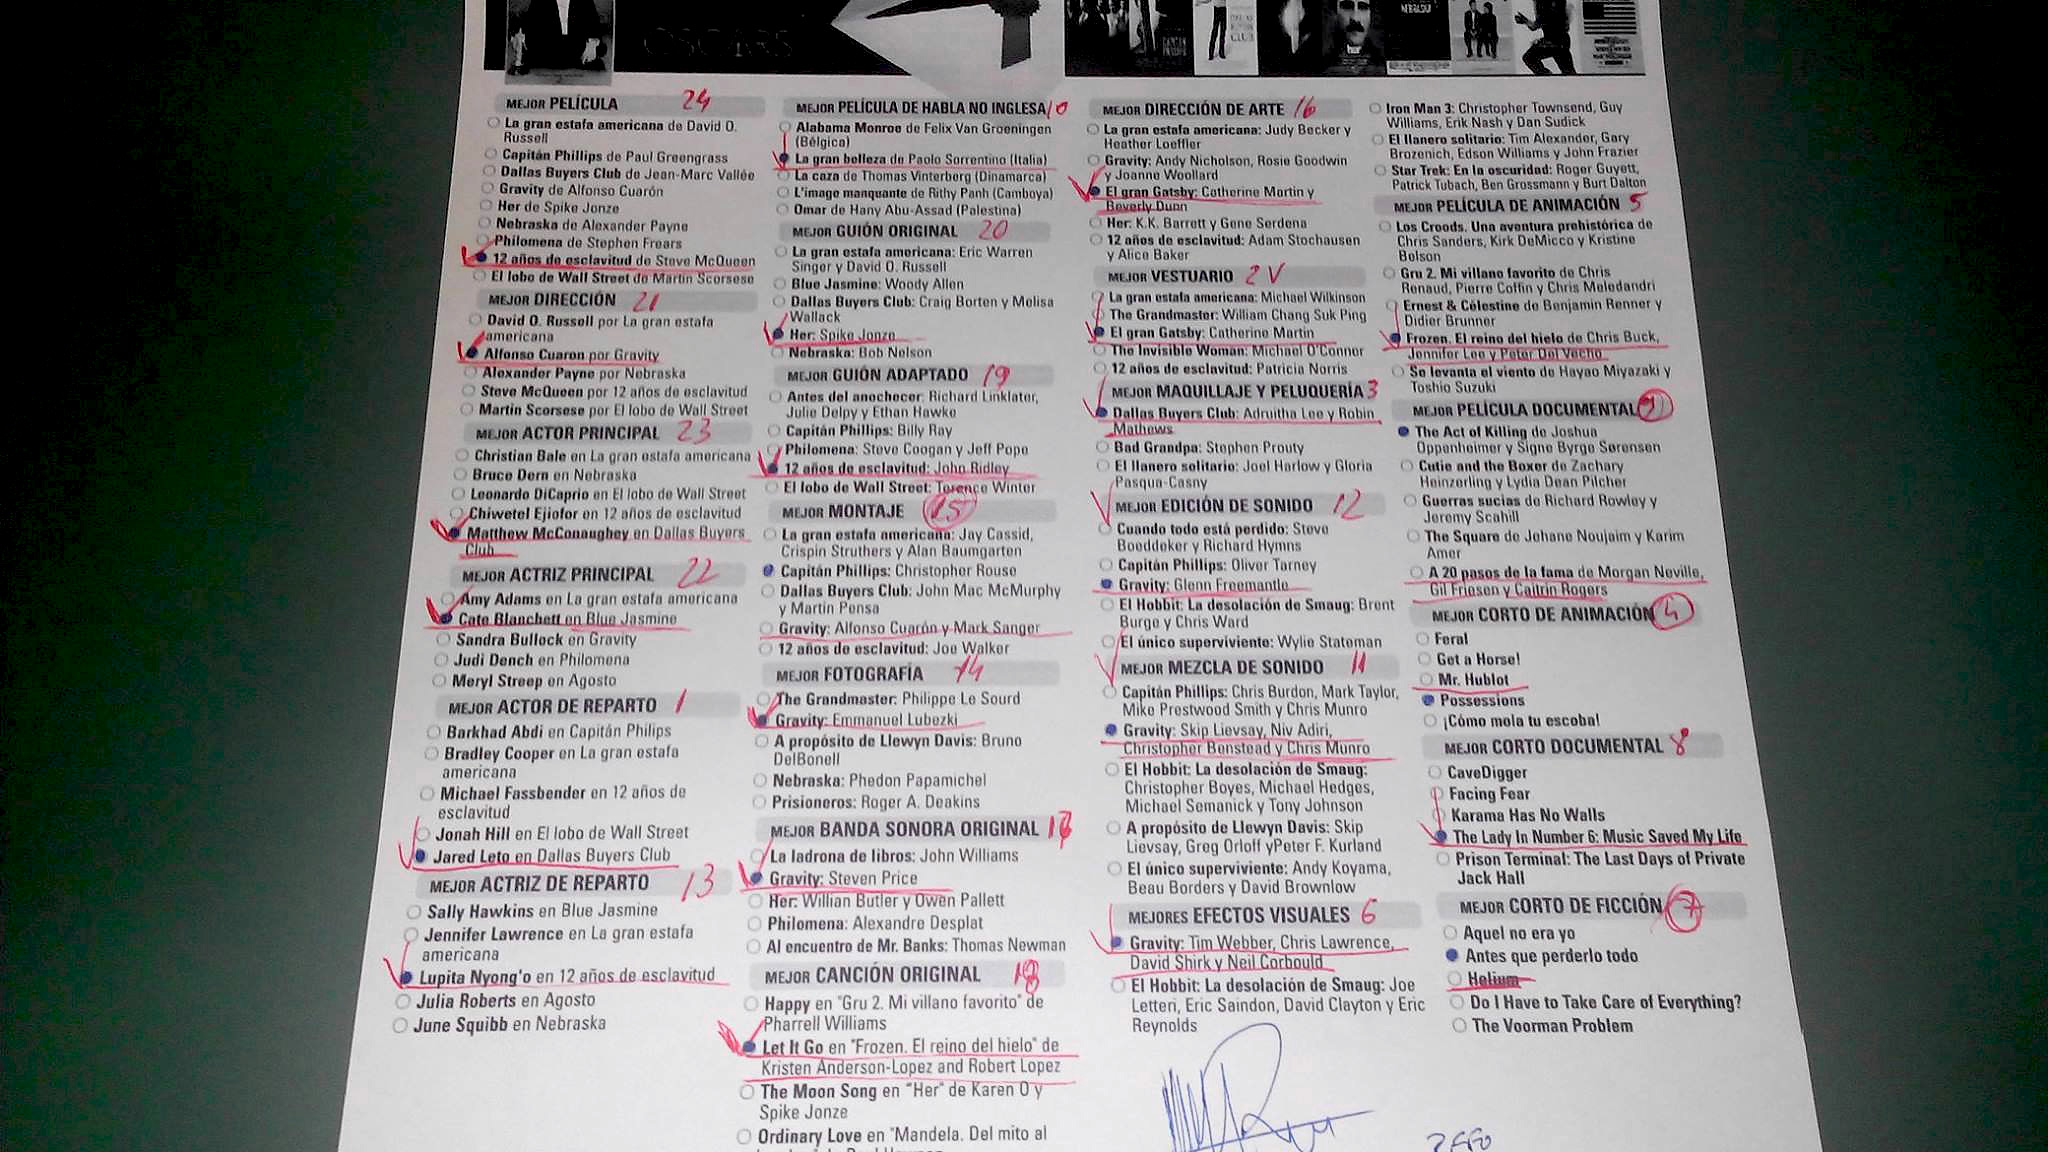 OSCARS
NEBRASKA
CLUB
MEJOR PELÍCULA 24
La gran estafa americana de David O.
Russell
Capitán Phillips de Paul Greengrass
Dallas Buyers Club de Jean-Marc Vallée
Gravity de Alfonso Cuarón
Her de Spike Jonze
Nebraska de Alexander Payne
Philomena de Stephen Frears
12 años de esclavitud de Steve McQueen
El lobo de Wall Street de Martin Scorsese
MEJOR DIRECCIÓN 21
David O. Russell por La gran estafa
americana
Alfonso Cuaron por Gravity
Alexander Payne por Nebraska
Steve McQueen por 12 años de esclavitud
Martin Scorsese por El lobo de Wall Street
MEJOR ACTOR PRINCIPAL 23
Christian Bale en La gran estafa americana
Bruce Dern en Nebraska
Leonardo DiCaprio en El lobo de Wall Street
Chiwetel Ejiofor en 12 años de esclavitud
Matthew McConaughey en Dallas Buyers
Club
MEJOR ACTRIZ PRINCIPAL 22
Amy Adams en La gran estafa americana
Cate Blanchett en Blue Jasmine
Sandra Bullock en Gravity
Judi Dench en Philomena
Meryl Streep en Agosto
MEJOR ACTOR DE REPARTO 1
Barkhad Abdi en Capitán Philips
Bradley Cooper en La gran estafa
americana
Michael Fassbender en 12 años de
esclavitud
Jonah Hill en El lobo de Wall Street
Jared Leto en Dallas Buyers Club
MEJOR ACTRIZ DE REPARTO 13
Sally Hawkins en Blue Jasmine
Jennifer Lawrence en La gran estafa
americana
Lupita Nyong'o en 12 años de esclavitud
Julia Roberts en Agosto
June Squibb en Nebraska
MEJOR PELÍCULA DE HABLA NO INGLESA 10
Alabama Monroe de Felix Van Groeningen
(Bélgica)
La gran belleza de Paolo Sorrentino (Italia)
La caza de Thomas Vinterberg (Dinamarca)
L'image manquante de Rithy Panh (Camboya)
Omar de Hany Abu-Assad (Palestina)
MEJOR GUIÓN ORIGINAL 20
La gran estafa americana: Eric Warren
Singer y David O. Russell
Blue Jasmine: Woody Allen
Dallas Buyers Club: Craig Borten y Melisa
Wallack
Her: Spike Jonze
Nebraska: Bob Nelson
MEJOR GUIÓN ADAPTADO 19
Antes del anochecer: Richard Linklater,
Julie Delpy y Ethan Hawke
Capitán Phillips: Billy Ray
Philomena: Steve Coogan y Jeff Pope
12 años de esclavitud: John Ridley
El lobo de Wall Street: Terence Winter
MEJOR MONTAJE 15
La gran estafa americana: Jay Cassid,
Crispin Struthers y Alan Baumgarten
Capitán Phillips: Christopher Rouse
Dallas Buyers Club: John Mac McMurphy
y Martin Pensa
Gravity: Alfonso Cuarón y Mark Sanger
12 años de esclavitud: Joe Walker
MEJOR FOTOGRAFÍA 14
The Grandmaster: Philippe Le Sourd
Gravity: Emmanuel Lubezki
A propósito de Llewyn Davis: Bruno
DelBonell
Nebraska: Phedon Papamichel
Prisioneros: Roger A. Deakins
MEJOR BANDA SONORA ORIGINAL
La ladrona de libros: John Williams
Gravity: Steven Price
Her: Willian Butler y Owen Pallett
Philomena: Alexandre Desplat
Al encuentro de Mr. Banks: Thomas Newman
MEJOR CANCIÓN ORIGINAL
Happy en "Gru 2. Mi villano favorito" de
Pharrell Williams
Let It Go en "Frozen. El reino del hielo" de
Kristen Anderson-Lopez and Robert Lopez
The Moon Song en "Her" de Karen O y
Spike Jonze
Ordinary Love en "Mandela. Del mito al
MEJOR DIRECCIÓN DE ARTE 16
La gran estafa americana: Judy Becker y
Heather Loeffler
Gravity: Andy Nicholson, Rosie Goodwin
y Joanne Woollard
El gran Gatsby: Catherine Martin y
Beverly Dunn
Her: K.K. Barrett y Gene Serdena
12 años de esclavitud: Adam Stochausen
y Alice Baker
MEJOR VESTUARIO 2 V
La gran estafa americana: Michael Wilkinson
The Grandmaster: William Chang Suk Ping
El gran Gatsby: Catherine Martin
The Invisible Woman: Michael O'Connor
12 años de esclavitud: Patricia Norris
MEJOR MAQUILLAJE Y PELUQUERÍA 3
Dallas Buyers Club: Adruitha Lee y Robin
Mathews
Bad Grandpa: Stephen Prouty
El llanero solitario: Joel Harlow y Gloria
Pasqua-Casny
MEJOR EDICIÓN DE SONIDO 12
Cuando todo está perdido: Steve
Boeddeker y Richard Hymns
Capitán Phillips: Oliver Tarney
Gravity: Glenn Freemantle
El Hobbit: La desolación de Smaug: Brent
Burge y Chris Ward
El único superviviente: Wylie Stateman
MEJOR MEZCLA DE SONIDO 11
Capitán Phillips: Chris Burdon, Mark Taylor,
Mike Prestwood Smith y Chris Munro
Gravity: Skip Lievsay, Niv Adiri,
Christopher Benstead y Chris Munro
El Hobbit: La desolación de Smaug:
Christopher Boyes, Michael Hedges,
Michael Semanick y Tony Johnson
A propósito de Llewyn Davis: Skip
Lievsay, Greg Orloff yPeter F. Kurland
El único superviviente: Andy Koyama,
Beau Borders y David Brownlow
MEJORES EFECTOS VISUALES 6
Gravity: Tim Webber, Chris Lawrence,
David Shirk y Neil Corbould
El Hobbit: La desolación de Smaug: Joe
Letteri, Eric Saindon, David Clayton y Eric
Reynolds
Iron Man 3: Christopher Townsend, Guy
Williams, Erik Nash y Dan Sudick
El llanero solitario: Tim Alexander, Gary
Brozenich, Edson Williams y John Frazier
Star Trek: En la oscuridad: Roger Guyett,
Patrick Tubach, Ben Grossmann y Burt Dalton
MEJOR PELÍCULA DE ANIMACIÓN 5
Los Croods. Una aventura prehistórica de
Chris Sanders, Kirk DeMicco y Kristine
Belson
Gru 2. Mi villano favorito de Chris
Renaud, Pierre Coffin y Chris Meledandri
Ernest & Célestine de Benjamin Renner y
Didier Brunner
Frozen. El reino del hielo de Chris Buck,
Jennifer Lee y Peter Del Vecho
Se levanta el viento de Hayao Miyazaki y
Toshio Suzuki
MEJOR PELÍCULA DOCUMENTAL
The Act of Killing de Joshua
Oppenheimer y Signe Byrge Sørensen
Cutie and the Boxer de Zachary
Heinzerling y Lydia Dean Pilcher
Guerras sucias de Richard Rowley y
Jeremy Scahill
The Square de Jehane Noujaim y Karim
Amer
A 20 pasos de la fama de Morgan Neville,
Gil Friesen y Caitrin Rogers
MEJOR CORTO DE ANIMACIÓN 4
Feral
Get a Horse!
Mr. Hublot
Possessions
¡Cómo mola tu escoba!
MEJOR CORTO DOCUMENTAL 8
CaveDigger
Facing Fear
Karama Has No Walls
The Lady In Number 6: Music Saved My Life
Prison Terminal: The Last Days of Private
Jack Hall
MEJOR CORTO DE FICCIÓN 7
Aquel no era yo
Antes que perderlo todo
Helium
Do I Have to Take Care of Everything?
The Voorman Problem